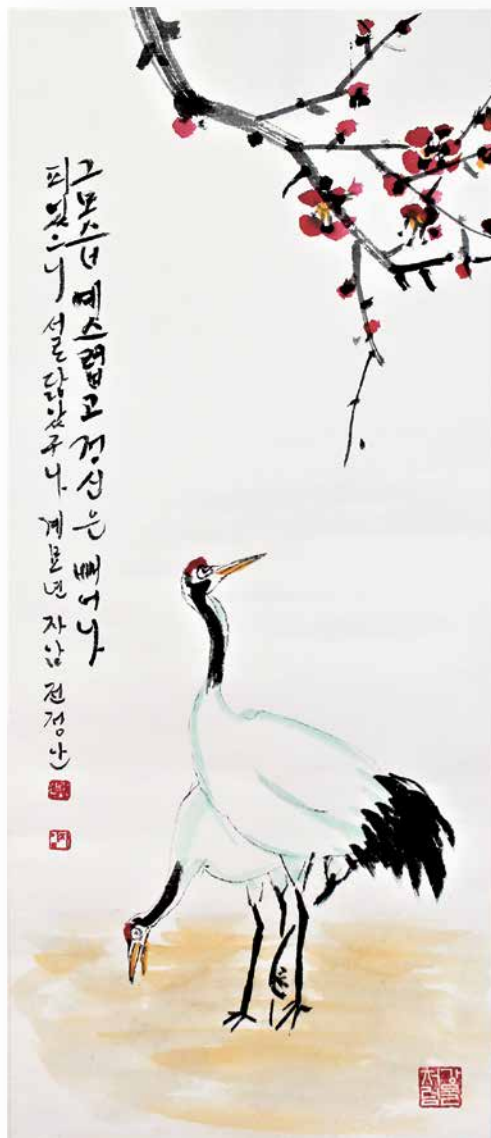 그 모습 예스럽고 정신은 빼어나
피었으니 닮았구나 계묘년 전정난